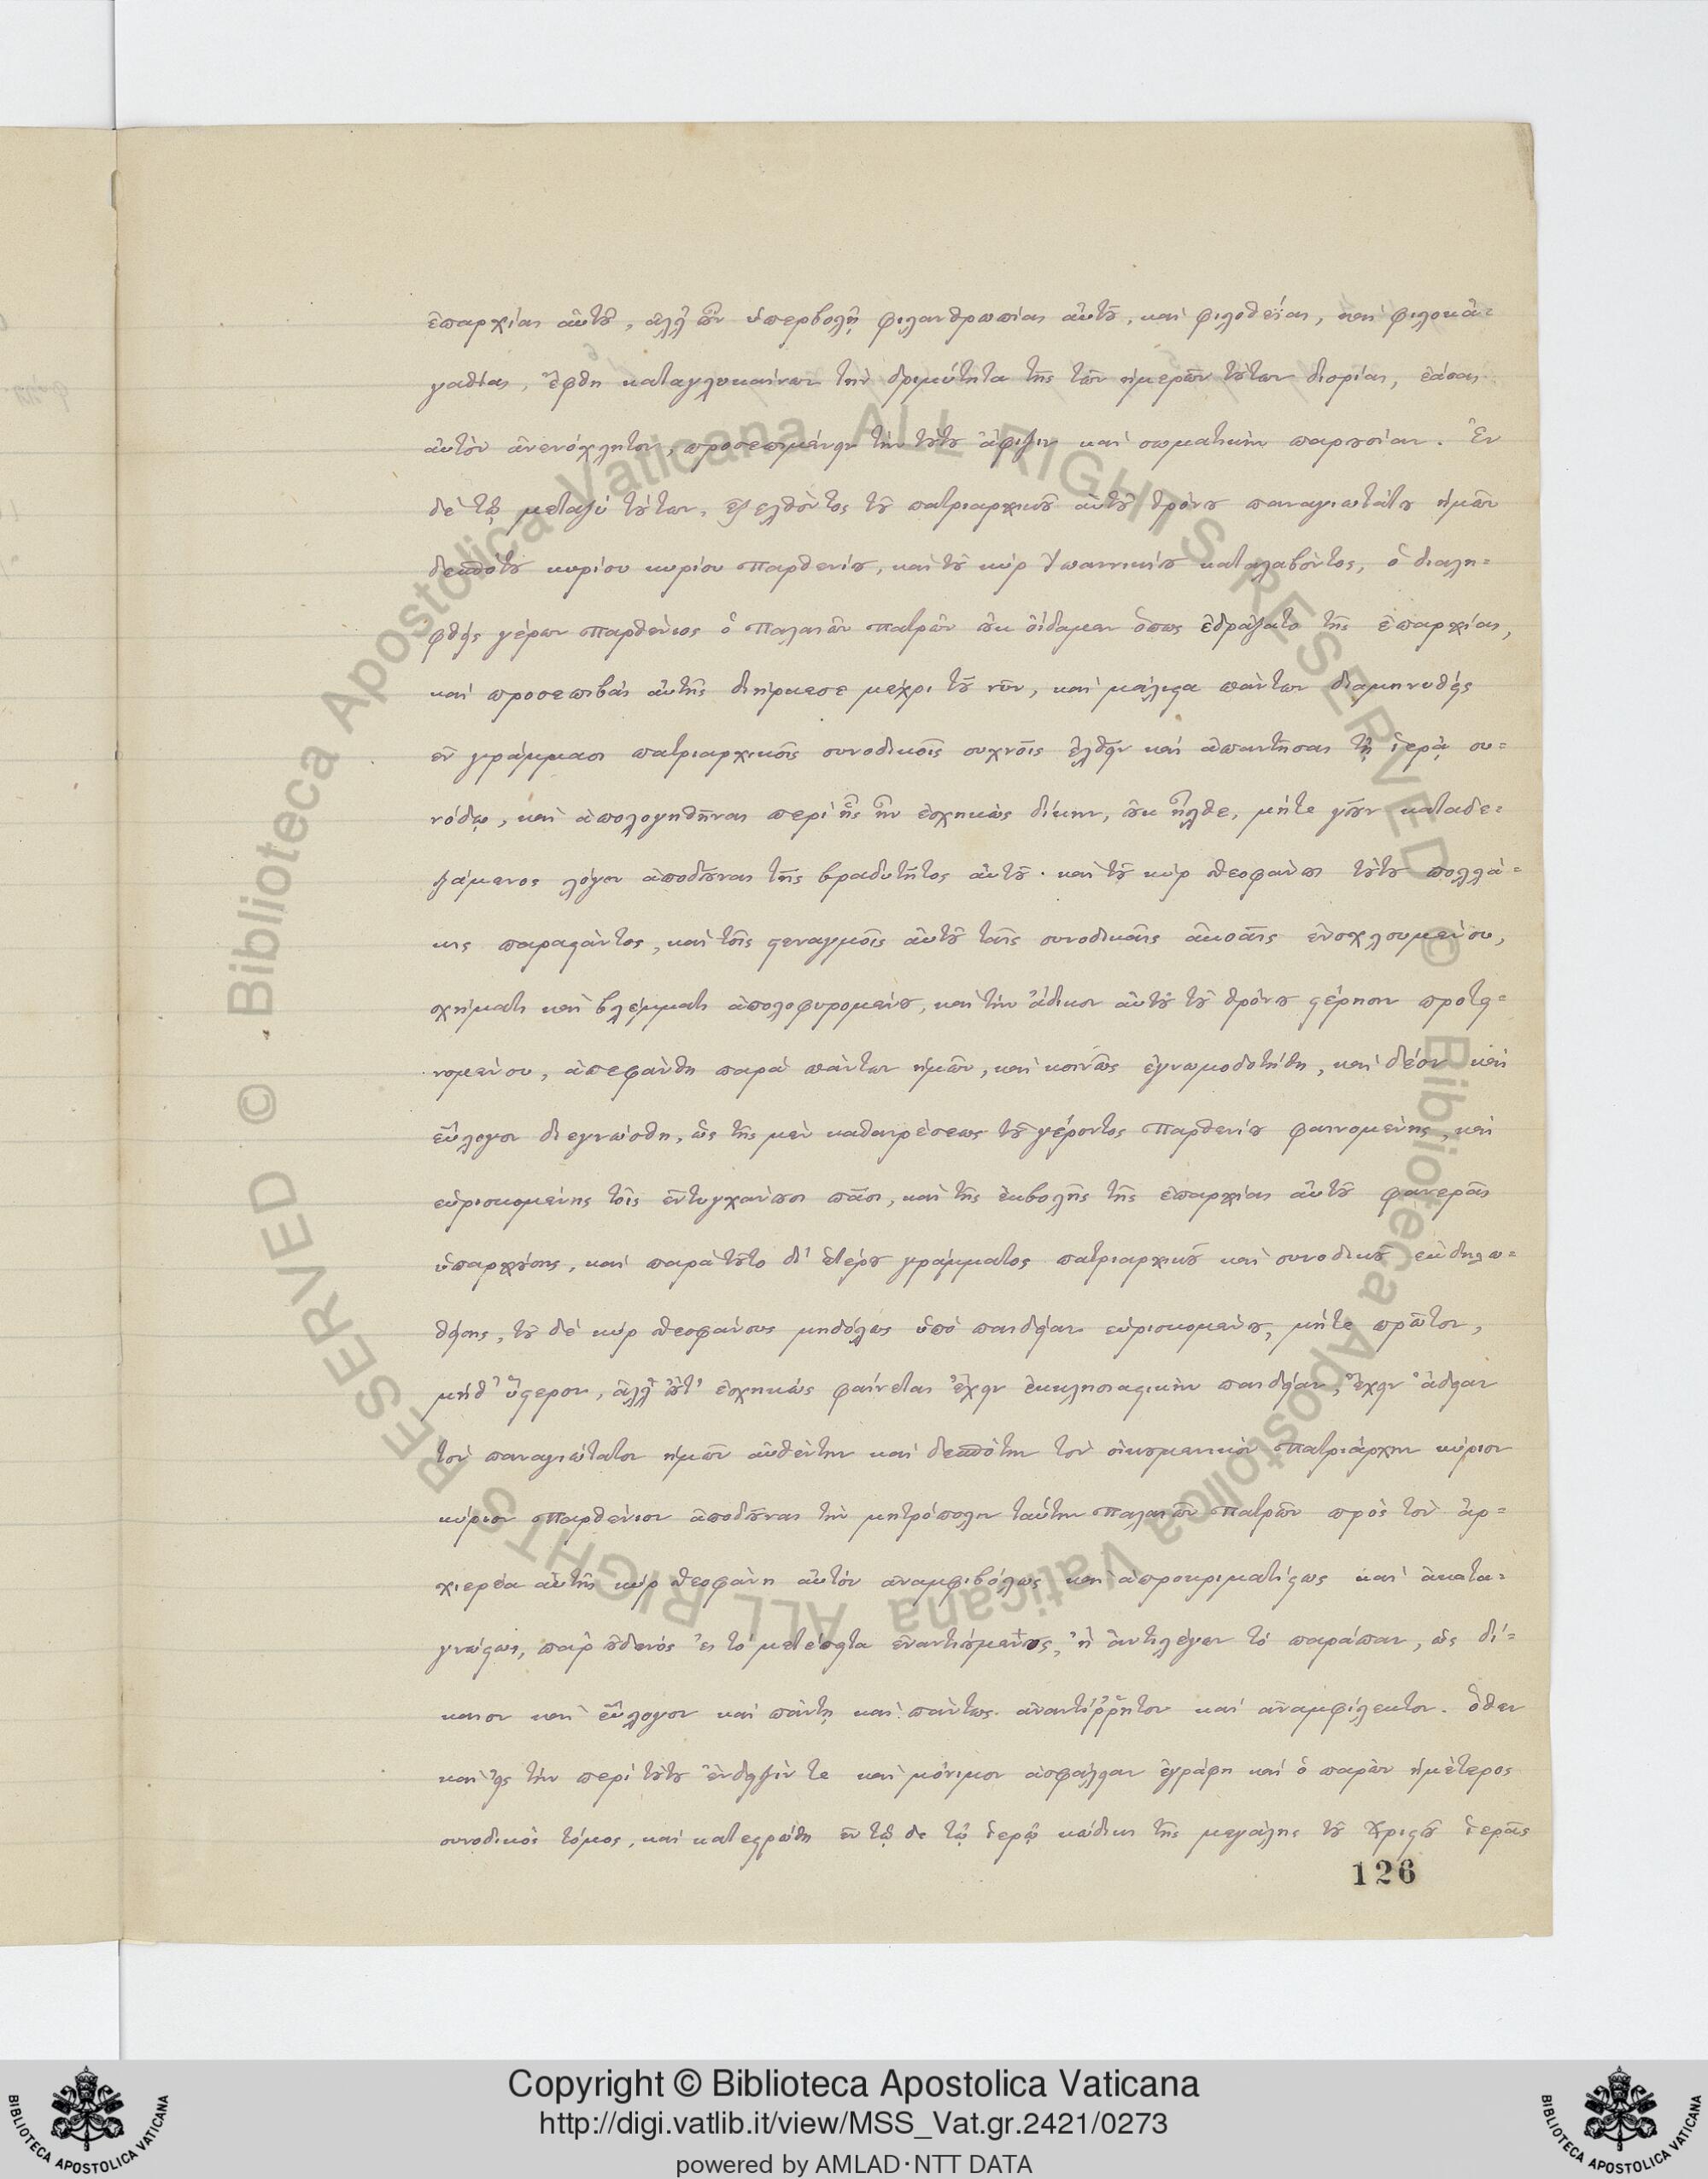 ἐπαρχίας αὐτοῦ, ἀλλ' οὖν ὑπερβολῇ φιλανθρωπίας αὐτοῦ, καὶ φιλοθεΐας, καὶ φιλοκα-
γαθίας, ἔφθη καταγλυκαίνων τὴν δριμύτητα τῆς τῶν ἡμερῶν τούτων διορίας, ἐάσας
αὐτὸν ἀνενόχλητον, προσεπιμένειν τὴν τούτου ἄφιξιν καὶ σωματικὴν παρουσίαν. Ἐν
δὲ τῷ μεταξὺ τούτων, ἐξελθόντος τοῦ πατριαρχικοῦ αὐτοῦ θρόνου παναγιωτάτου ἡμῶν
δεσπότου κυρίου κυρίου Παρθενίου, καὶ τοῦ κὺρ Ἰωαννικίου καταλαβόντος, ὁ διαλη-
φθεὶς γέρων Παρθένιος ὁ Παλαιῶν Πατρῶν οὐκ οἴδαμεν ὅπως ἐδράξατο τῆς ἐπαρχίας,
καὶ προσεπιβὰς αὐτῆς διήρκεσε μέχρι τοῦ νῦν, καὶ μάλιστα πάντων διαμηνυθεὶς
ἐν γράμμασι πατριαρχικοῖς συνοδικοῖς συχνοῖς ἐλθεῖν καὶ ἀπαντῆσαι τῇ ἱερᾷ συ-
νόδῳ, καὶ ἀπολογηθῆναι περὶ ἧς ἦν ἐσχηκὼς δίκην, οὐκ ἦλθε, μήτε γοῦν καταδε-
ξάμενος λόγον ἀποδοῦναι τῆς βραδυτῆτος αὐτοῦ· καὶ τοῦ κὺρ Θεοφάνου τούτου πολλά-
κις παραστάντος, καὶ τοῖς στεναγμοῖς αὐτοῦ ταῖς συνοδικαῖς ἀκοαῖς ἐνοχλουμένου,
σχήματι καὶ βλέμματι ἀπολοφυρομένου, καὶ τὴν ἄδικον αὐτοῦ τοῦ θρόνου στέρησιν προτει-
νομένου, ἀπεφάνθη παρὰ πάντων ἡμῶν, καὶ κοινῶς ἐγνωμοδοτήθη, καὶ δέον καὶ
εὔλογον διεγνώσθη, ὡς τῆς μὲν καθαιρέσεως τοῦ γέροντος Παρθενίου φαινομένης, καὶ
εὑρισκομένης τοῖς ἐντυγχάνουσι πᾶσι, καὶ τῆς ἐκβολῆς τῆς ἐπαρχίας αὐτοῦ φανερᾶς
ὑπαρχούσης, καὶ παρὰ τοῦτο δι' ἑτέρου γράμματος πατριαρχικοῦ καὶ συνοδικοῦ ἐκδηλω-
θείσης, τοῦ δὲ κὺρ Θεοφάνους μηδόλως ὑπὸ παιδείαν εὑρισκομένου, μήτε πρῶτον,
μήθ' ὕστερον, ἀλλ' οὔτ' ἐσχηκὼς φαίνεται ἔχειν ἐκκλησιαστικὴν παιδείαν, ἔχειν ἄδειαν
τὸν παναγιώτατον ἡμῶν αὐθέντην καὶ δεσπότην τὸν οἰκουμενικὸν Πατριάρχην κύριον
κύριον Παρθένιον ἀποδοῦναι τὴν μητρόπολιν ταύτην Παλαιῶν Πατρῶν πρὸς τὸν ἀρ-
χιερέα αὐτῆς κὺρ Θεοφάνη αὐτὸν ἀναμφιβόλως καὶ ἀπροκριματίστως καὶ ἀκατα-
γνώστως, παρ' οὐδενὸς ἐς τὸ μετέπειτα ἐναντιούμενος, ἢ ἀντιλέγειν τὸ παράπαν, ὡς δί-
καιον καὶ εὔλογον καὶ πάντῃ καὶ πάντως ἀναντίῤῥητον καὶ ἀναμφίλεκτον. Ὅθεν
καὶ εἰς τὴν περὶ τούτου ἔνδειξίν τε καὶ μόνιμον ἀσφάλειαν ἐγράφη καὶ ὁ παρὼν ἡμέτερος
συνοδικὸς τόμος, καὶ κατεστρώθη ἐν τῷδε τῷ ἱερῷ κώδικι τῆς μεγάλης τοῦ Χριστοῦ ἱερᾶς
126
© Biblioteca Apostolica Vaticana ALL RIGHTS RESERVED © Biblioteca Apostolica Vaticana ALL RIGHTS RESERVED
Copyright © Biblioteca Apostolica Vaticana
http://digi.vatlib.it/view/MSS_Vat.gr.2421/0273
powered by AMLAD·NTT DATA
BIBLIOTECA APOSTOLICA VATICANA
BIBLIOTECA APOSTOLICA VATICANA